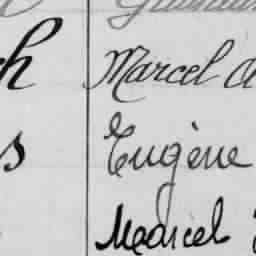 h Marcel de
s Eugène
Marcel